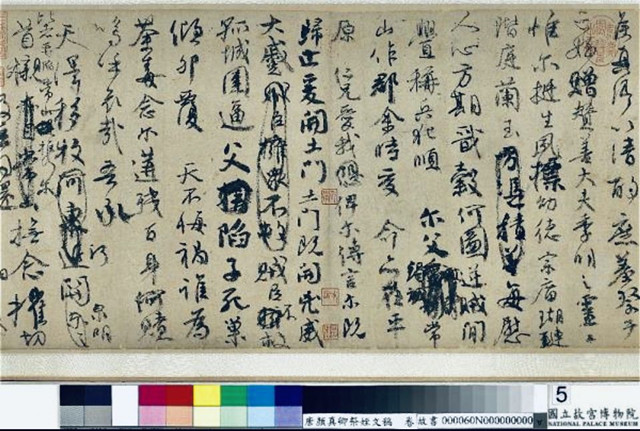 侯真卿以清酌庶羞祭于
亡姪贈贊善大夫季明之靈曰
惟爾挺生夙標幼德宗廟瑚璉
階庭蘭玉方憑積善每慰
人心方期戩穀何圖逆賊閒
釁稱兵犯順爾父竭誠常
山作郡余時受命亦在平
原仁兄愛我恐俾爾傳言爾既
歸止爰開土門土門既開凶威
大蹙賊臣擁衆不救賊臣不救
孤城圍逼父擒陷子死巢
傾卵覆天不悔禍誰為
荼毒念爾遘殘百身何贖
嗚乎哀哉吾承
泉明
天澤移牧河東近河關
比者再陷常山攜爾
首櫬亦自常山撫念摧切
及茲同還
唐顏真卿祭姪文稿 卷 故書 000060N000000000
5
國立故宮博物院
NATIONAL PALACE MUSEUM